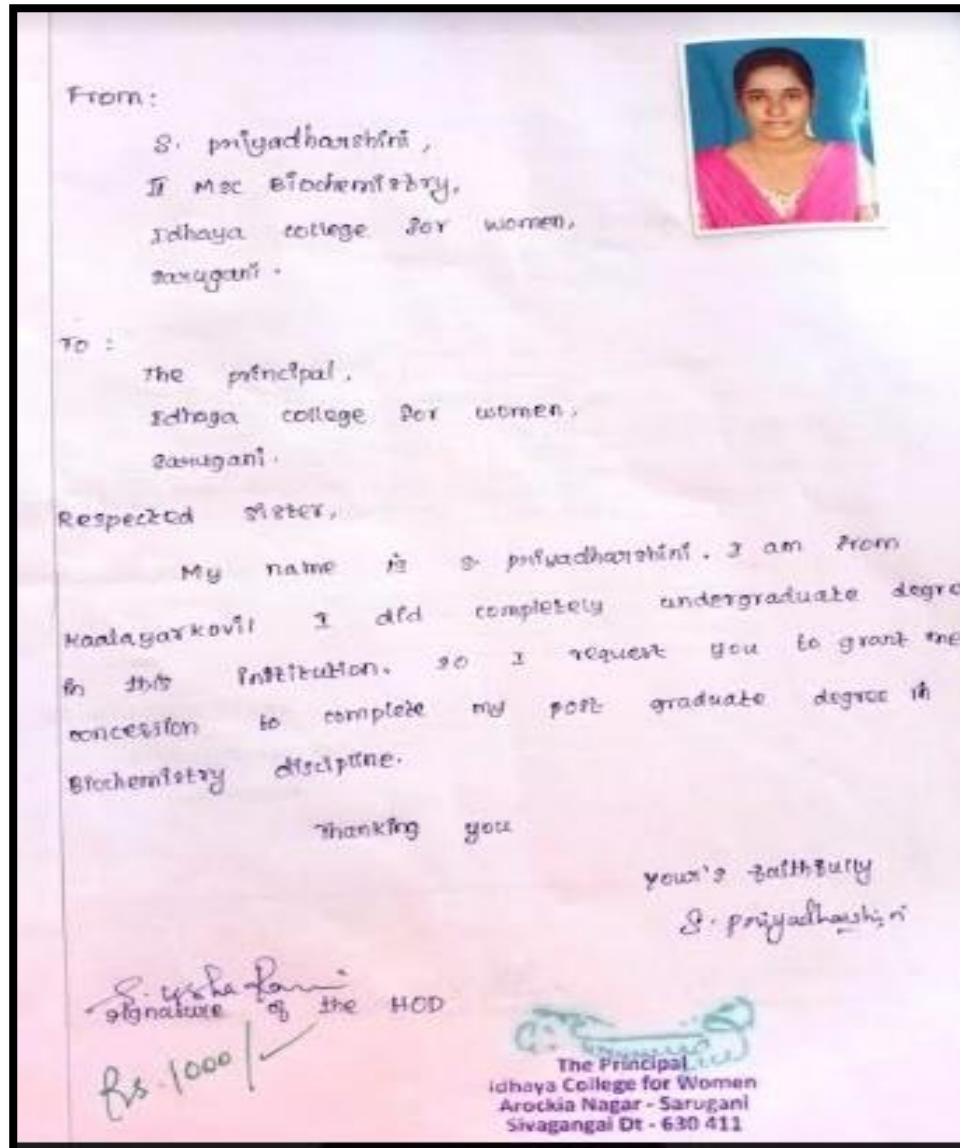 From:
S. priyadharshini,
II Msc Biochemistry,
Idhaya college for women,
Sarugani.
To :
The principal,
Idhaya college for women,
Sarugani.
Respected sister,
My name is S. priyadharshini. I am from
Kaalayarkovil I did completely undergraduate degre
in this institution. so I request you to grant me
concession to complete my post graduate degree in
Biochemistry discipline.
Thanking you
your's faithfully
S. priyadharshini
S. Usha Rani
signature of the HOD
Rs. 1000/-
The Principal
Idhaya College for Women
Arockia Nagar - Sarugani
Sivagangai Dt - 630 411